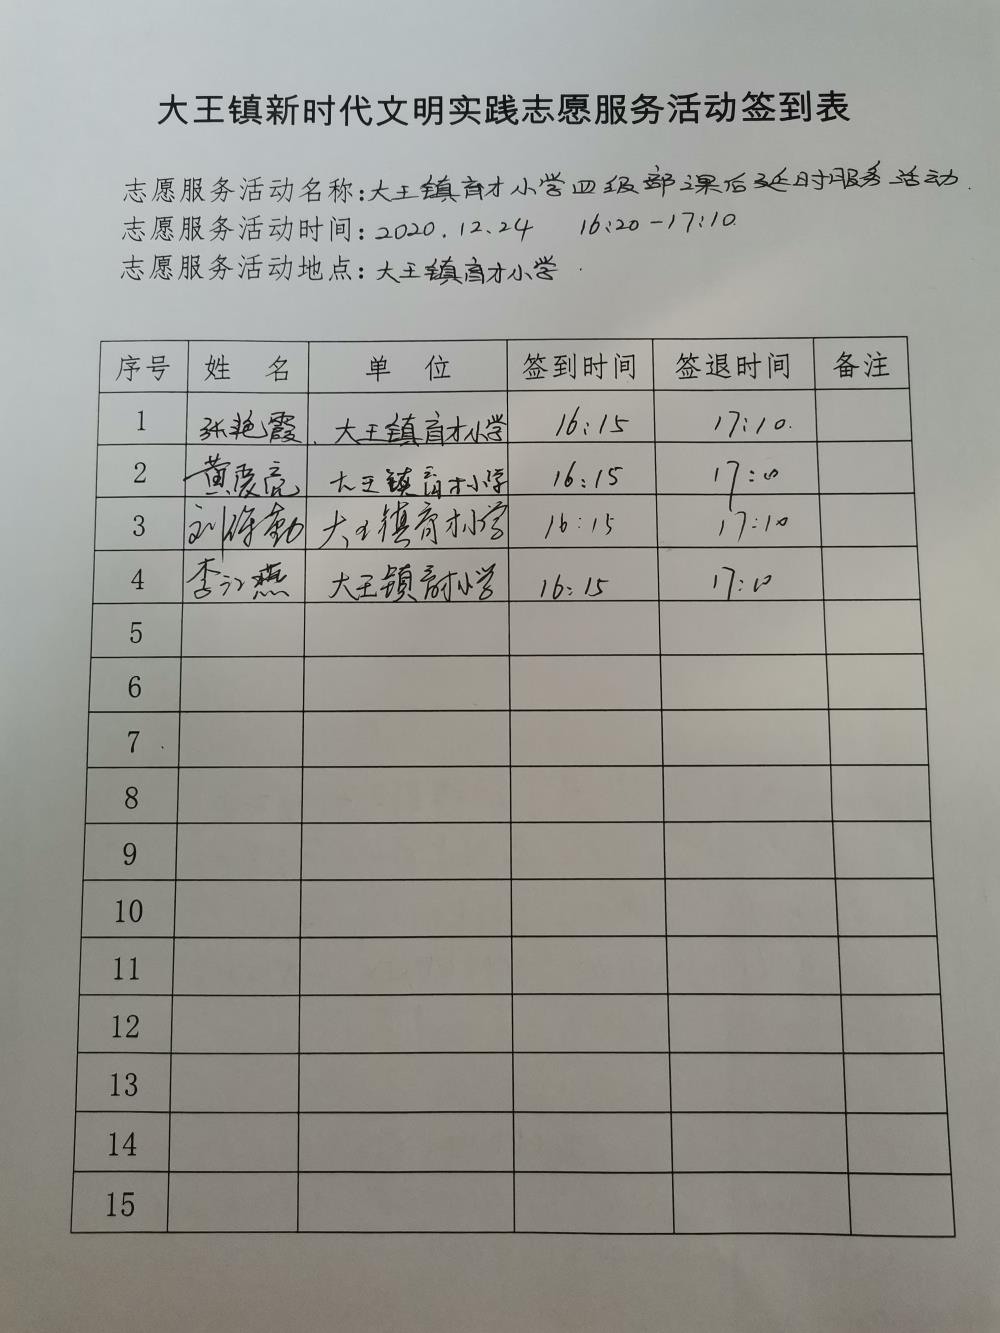 大王镇新时代文明实践志愿服务活动签到表
志愿服务活动名称:大王镇育才小学四级部课后延时服务活动.
志愿服务活动时间:2020.12.24 16:20-17:10
志愿服务活动地点:大王镇育才小学.
序号 姓 名 单 位 签到时间 签退时间 备注
1 张艳霞 大王镇育才小学 16:15 17:10.
2 黄爱亮 大王镇育才小学 16:15 17:10
3 大王镇育才小学 16:15 17:10
4 大王镇育才小学 16:15 17:10
5
6
7
8
9
10
11
12
13
14
15